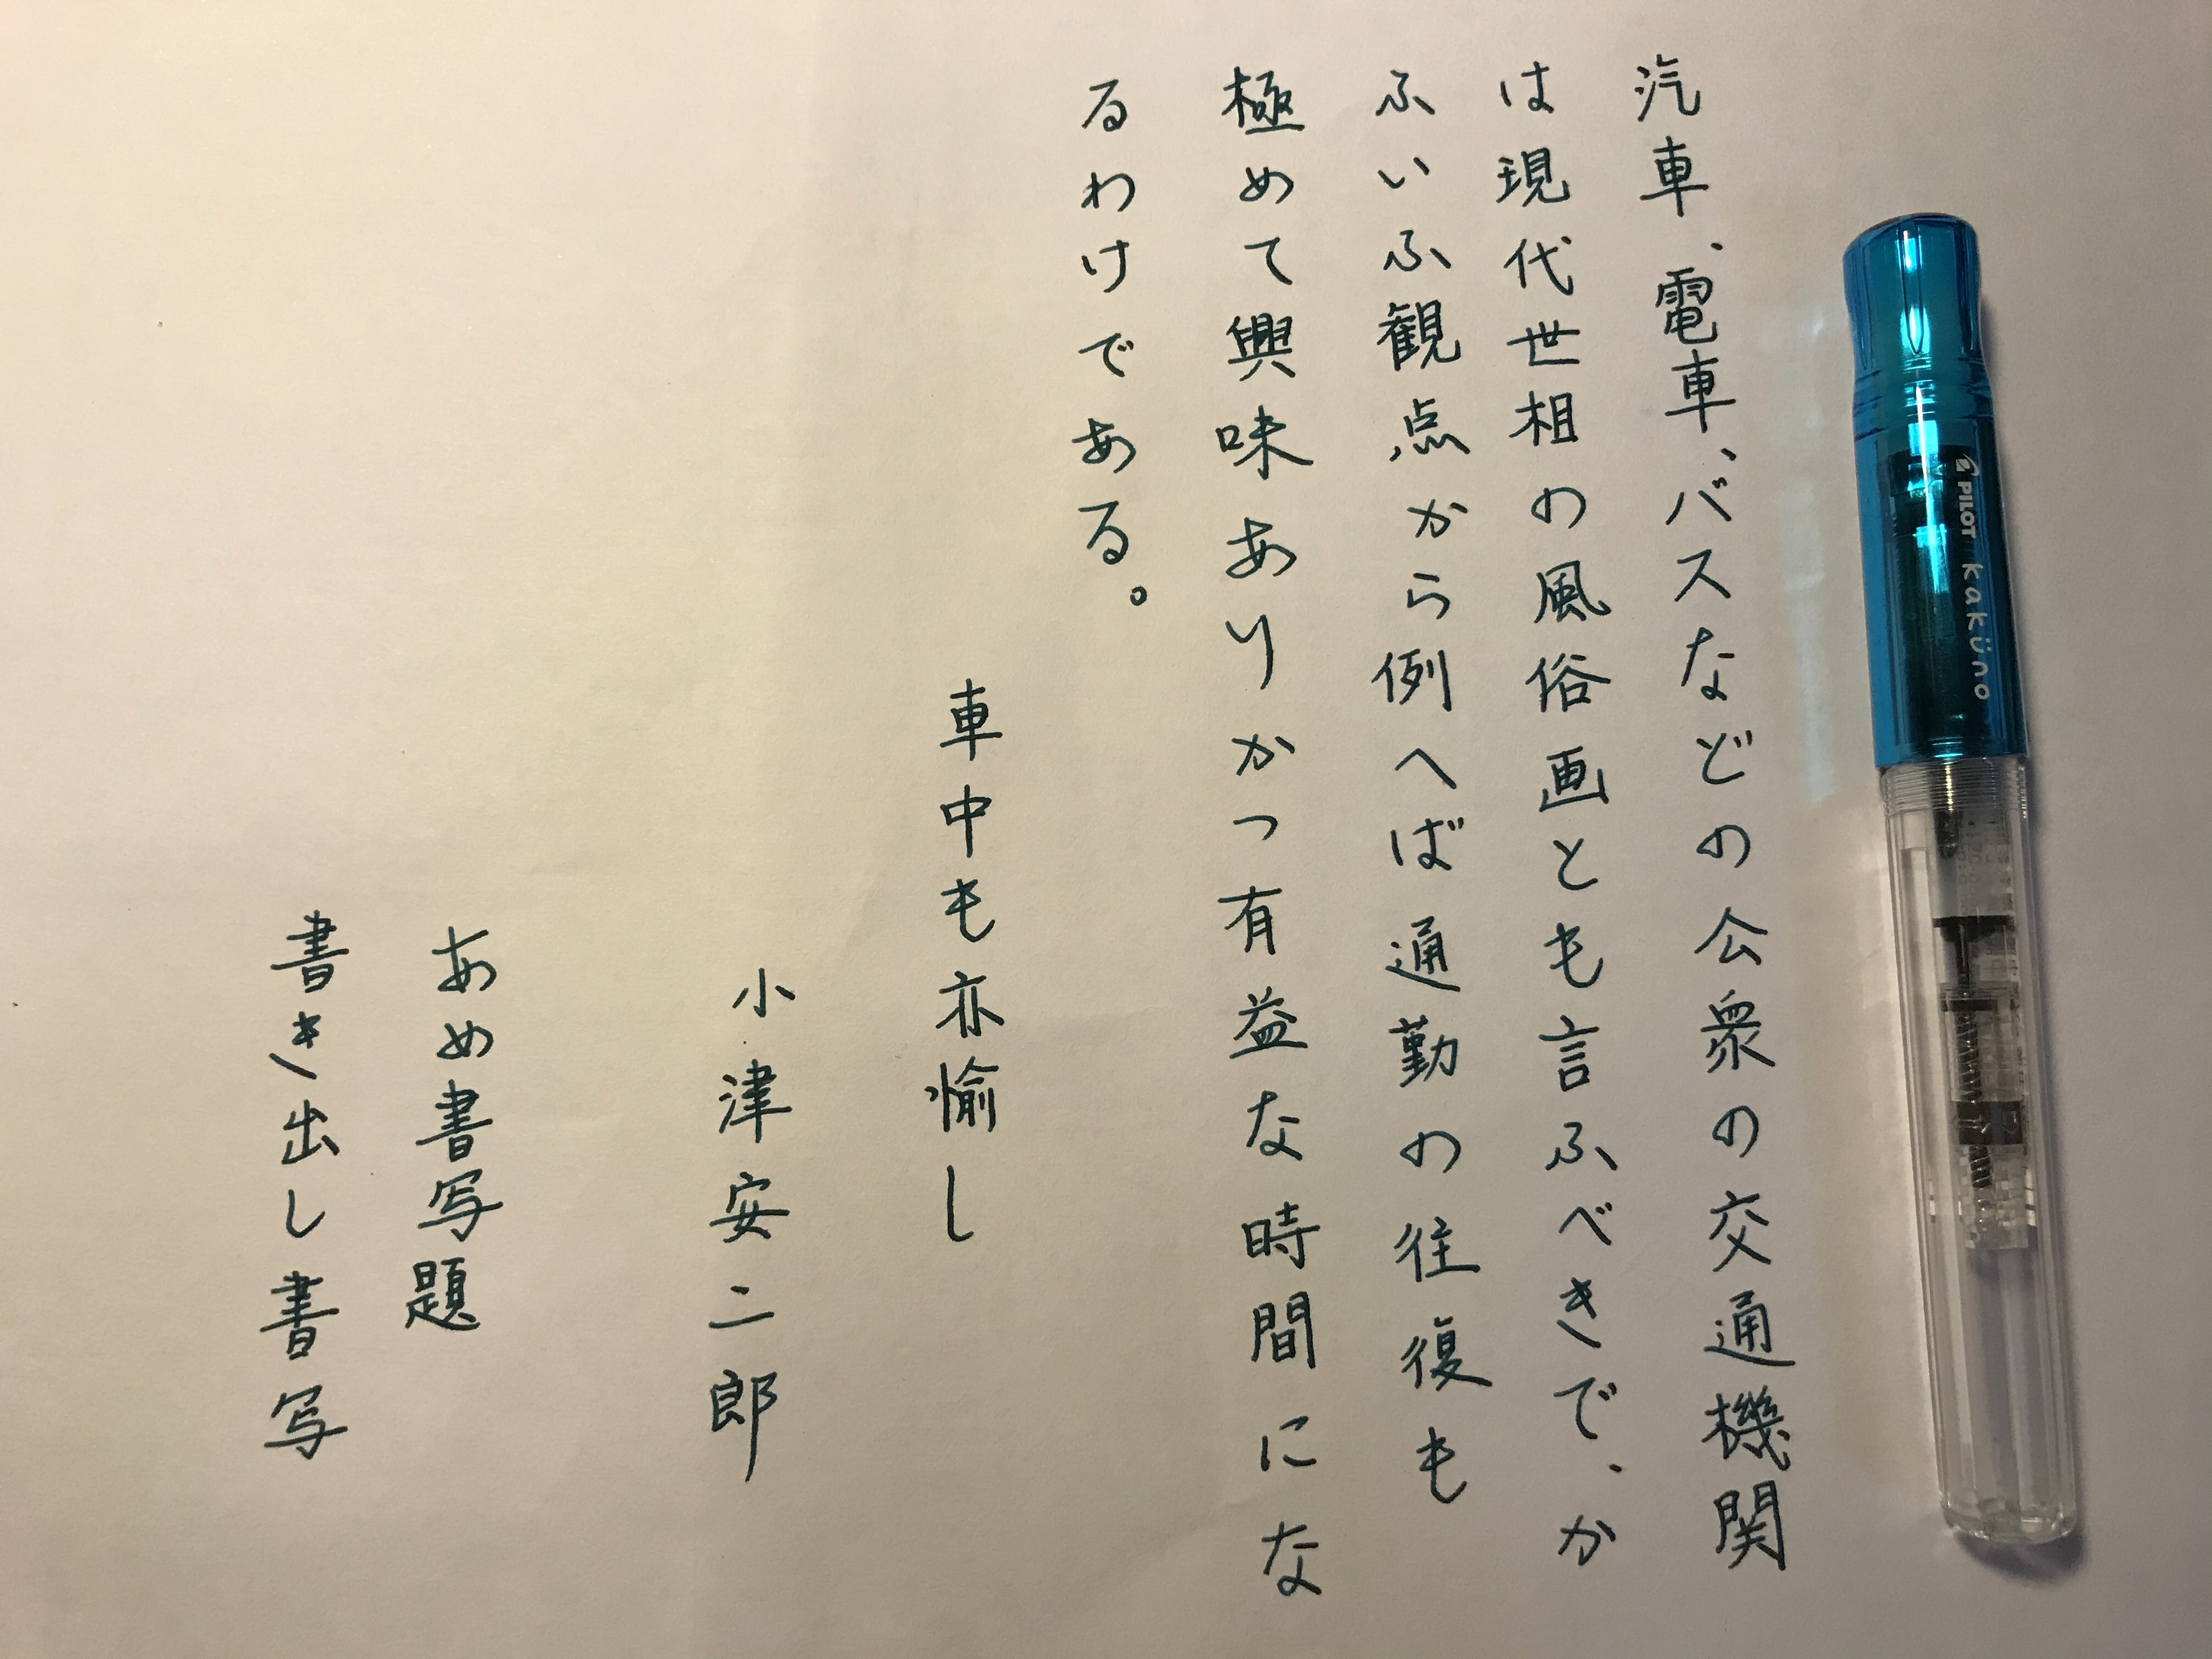 汽車、電車、バスなどの公衆の交通機関
は現代世相の風俗画とも言ふべきで、か
ふいふ観点から例へば通勤の往復も
極めて興味ありかつ有益な時間にな
るわけである。
車中も亦愉し
小津安二郎
あめ書写題
書き出し書写
PILOT kaküno